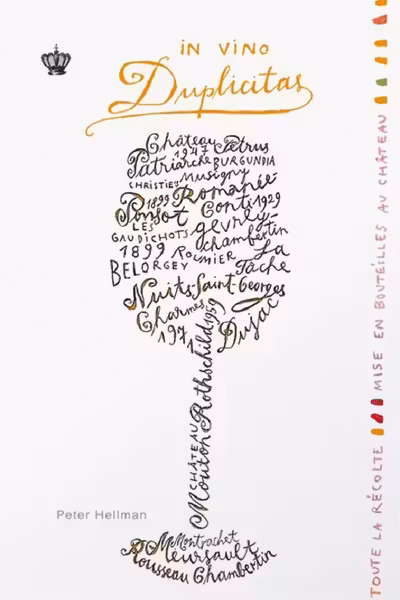 in vino
Duplicitas
Château Pétrus
1947
Patriarche BURGUNDIA
CHRISTIES Musigny
1899 Romanée-
Ponsot Conti 1929
LES gevrey-
GAUDICHOTS chambertin
1899 ROUMIER La
BELORGEY Tâche
Nuits-Saint-Georges
Charmes 1959 Dujac
1971
CHÂTEAU
Mouton Rothschild
Montrachet
Meursault
Rousseau Chambertin
Peter Hellman
TOUTE LA RÉCOLTE MISE EN BOUTEILLES AU CHÂTEAU